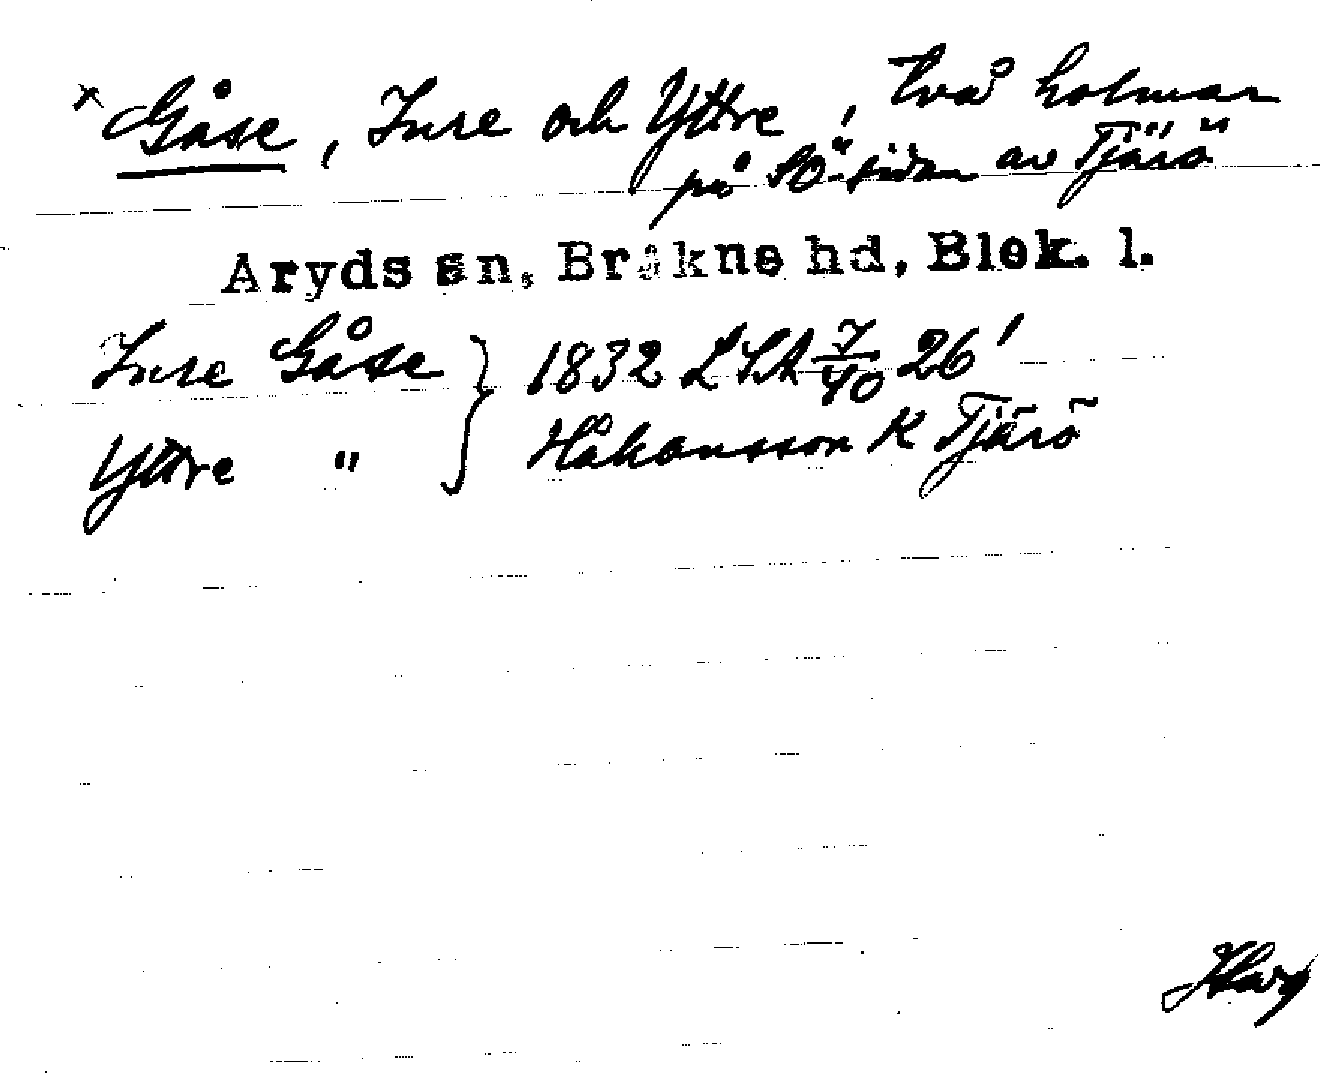 x Gåse, Inre och Yttre, två holmar
på SÖ-sidan av Tjärö
Aryds sn, Bräkne hd, Blek. l.
Inre Gåse } 1832 LSA 7/40 26'
Yttre " Håkansson K Tjärö